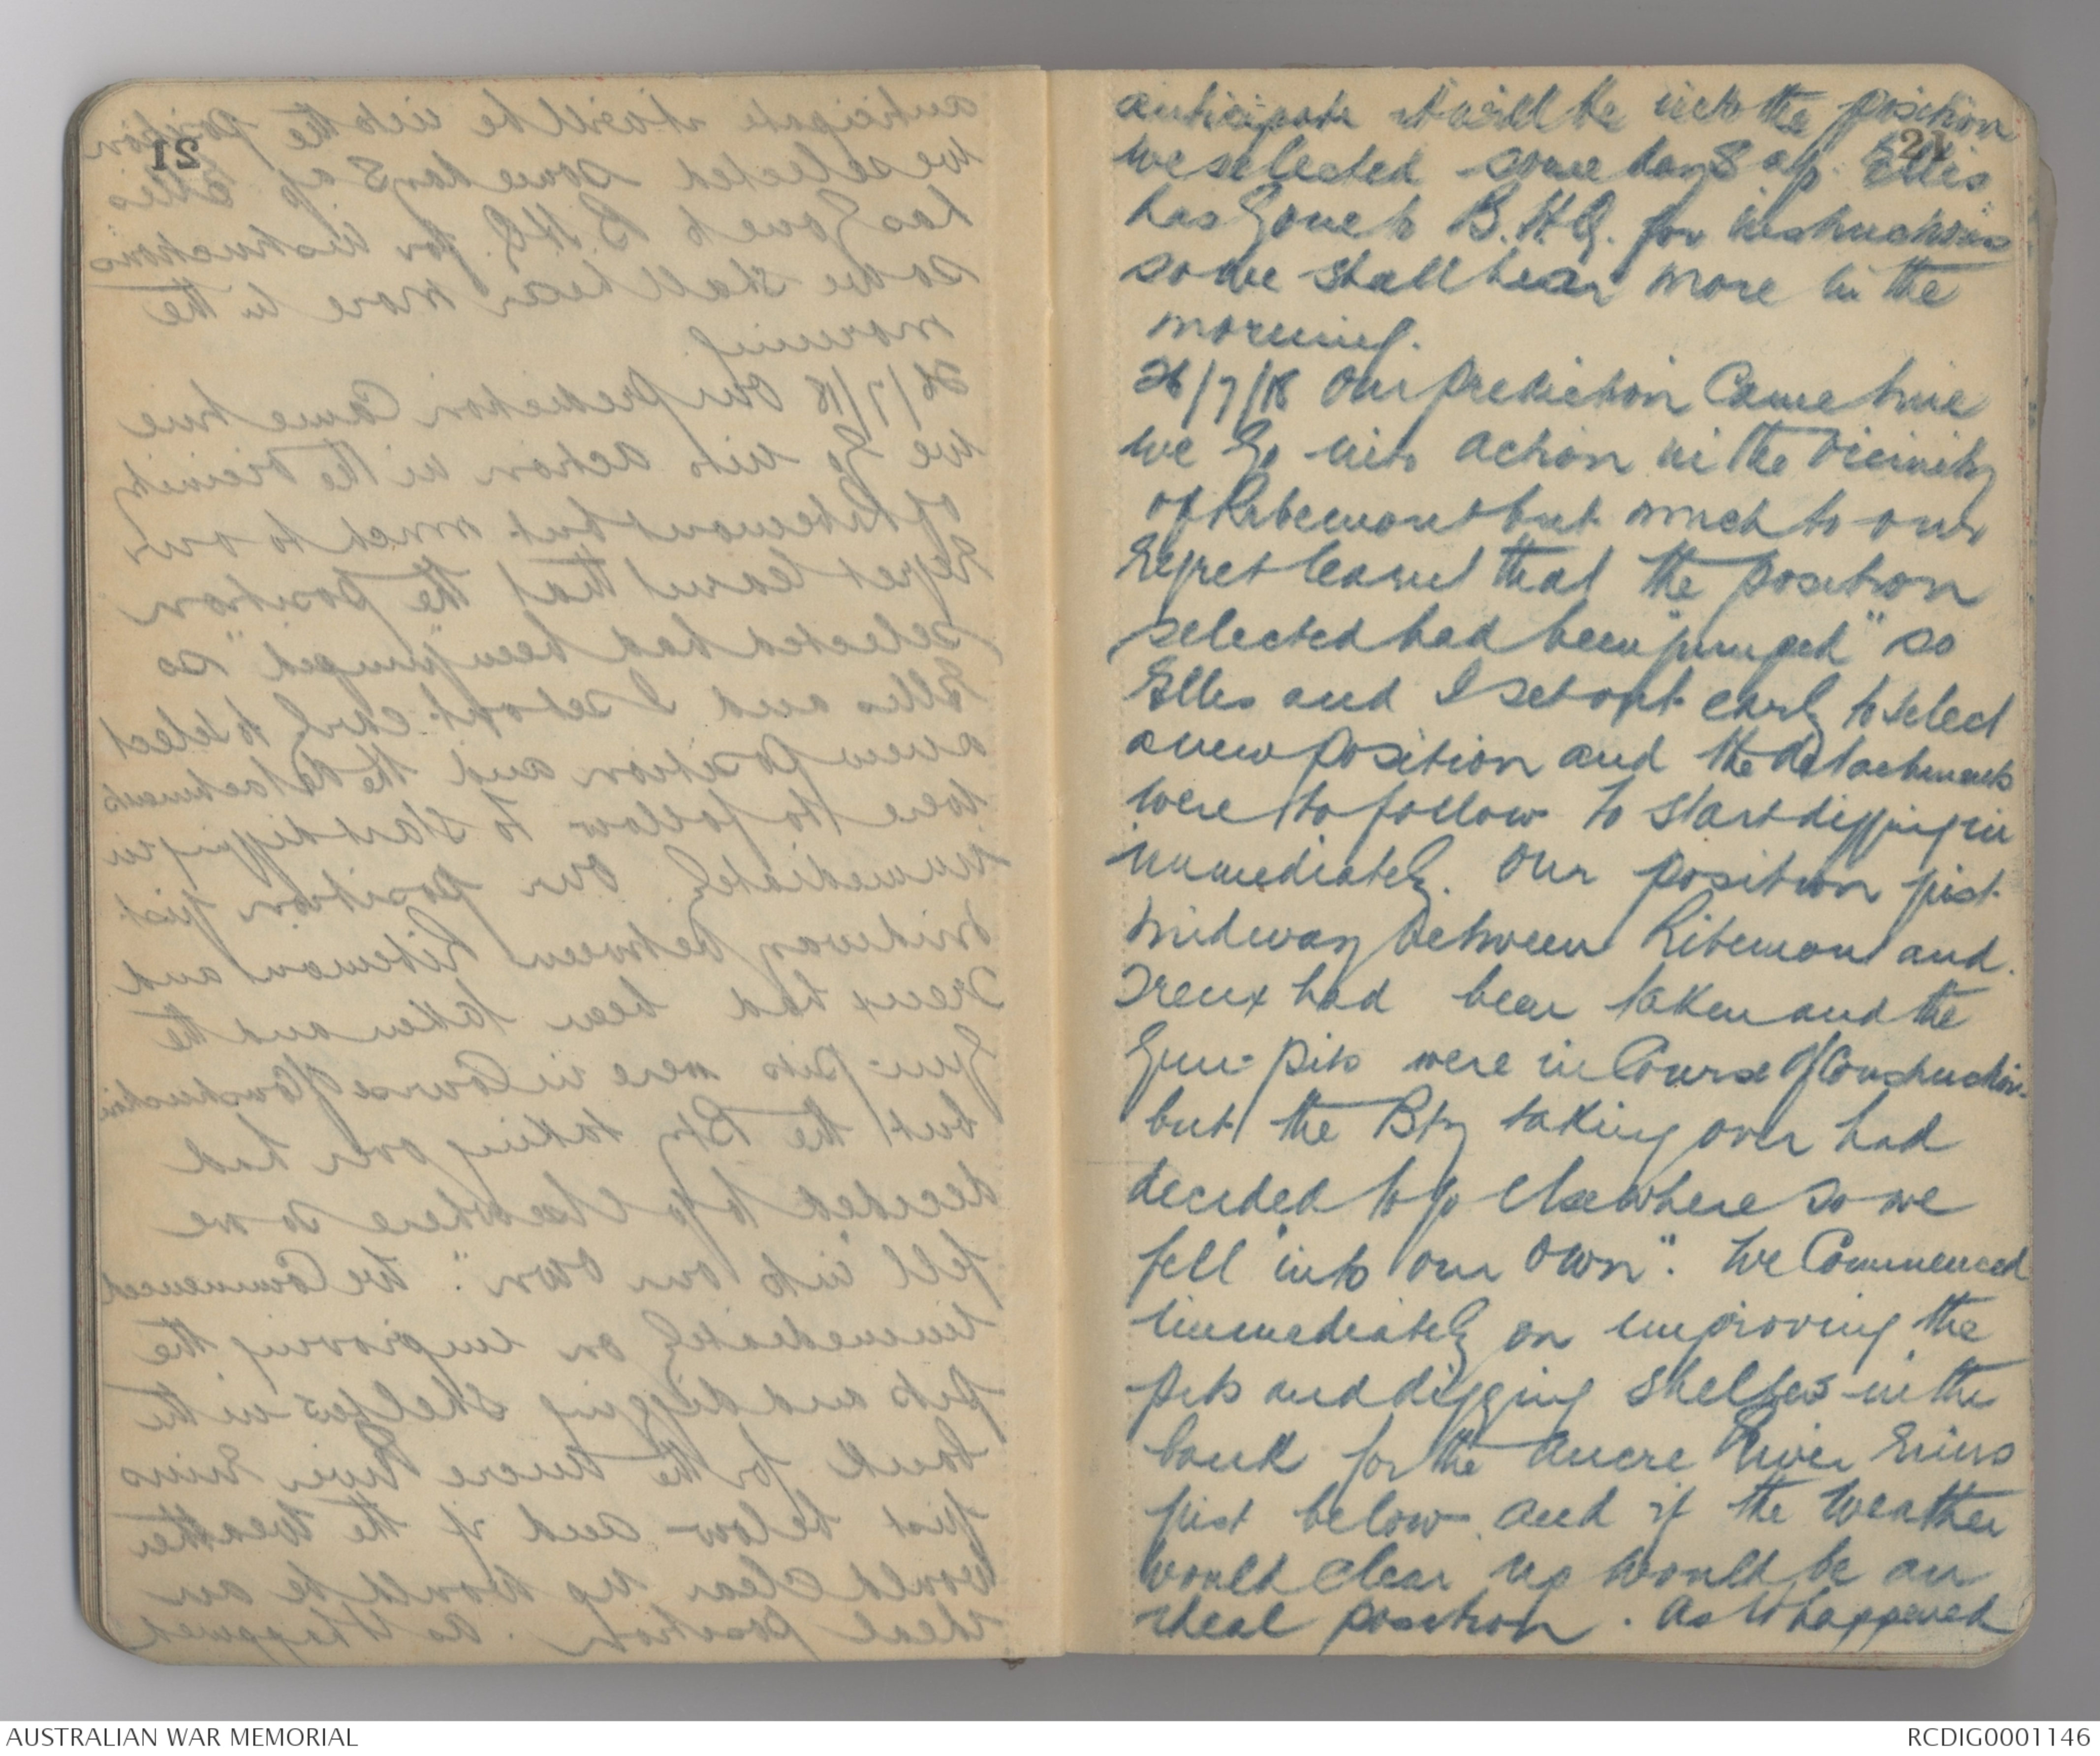 21
anticipate it will be into the position
we selected some days ago. Ellis
has gone to B.H.Q. for instructions
so we shall hear more in the
morning.
26/7/18 Our prediction came true
we go into action in the vicinity
of Ribemont but much to our
regret learnt that the position
selected had been "jumped" so
Elles and I set out early to select
a new position and the detachments
were to follow to start digging in
immediately. Our position just
midway between Ribemont and
Treux had been taken and the
Gun-pits were in Course of Construction
but the Bty taking over had
decided to go elsewhere so we
fell "into our own". We Commenced
immediately on improving the
pits and digging shelters in the
bank for the Ancre River runs
just below and if the weather
would clear up would be an
ideal position. As it happened
AUSTRALIAN WAR MEMORIAL
RCDIG0001146